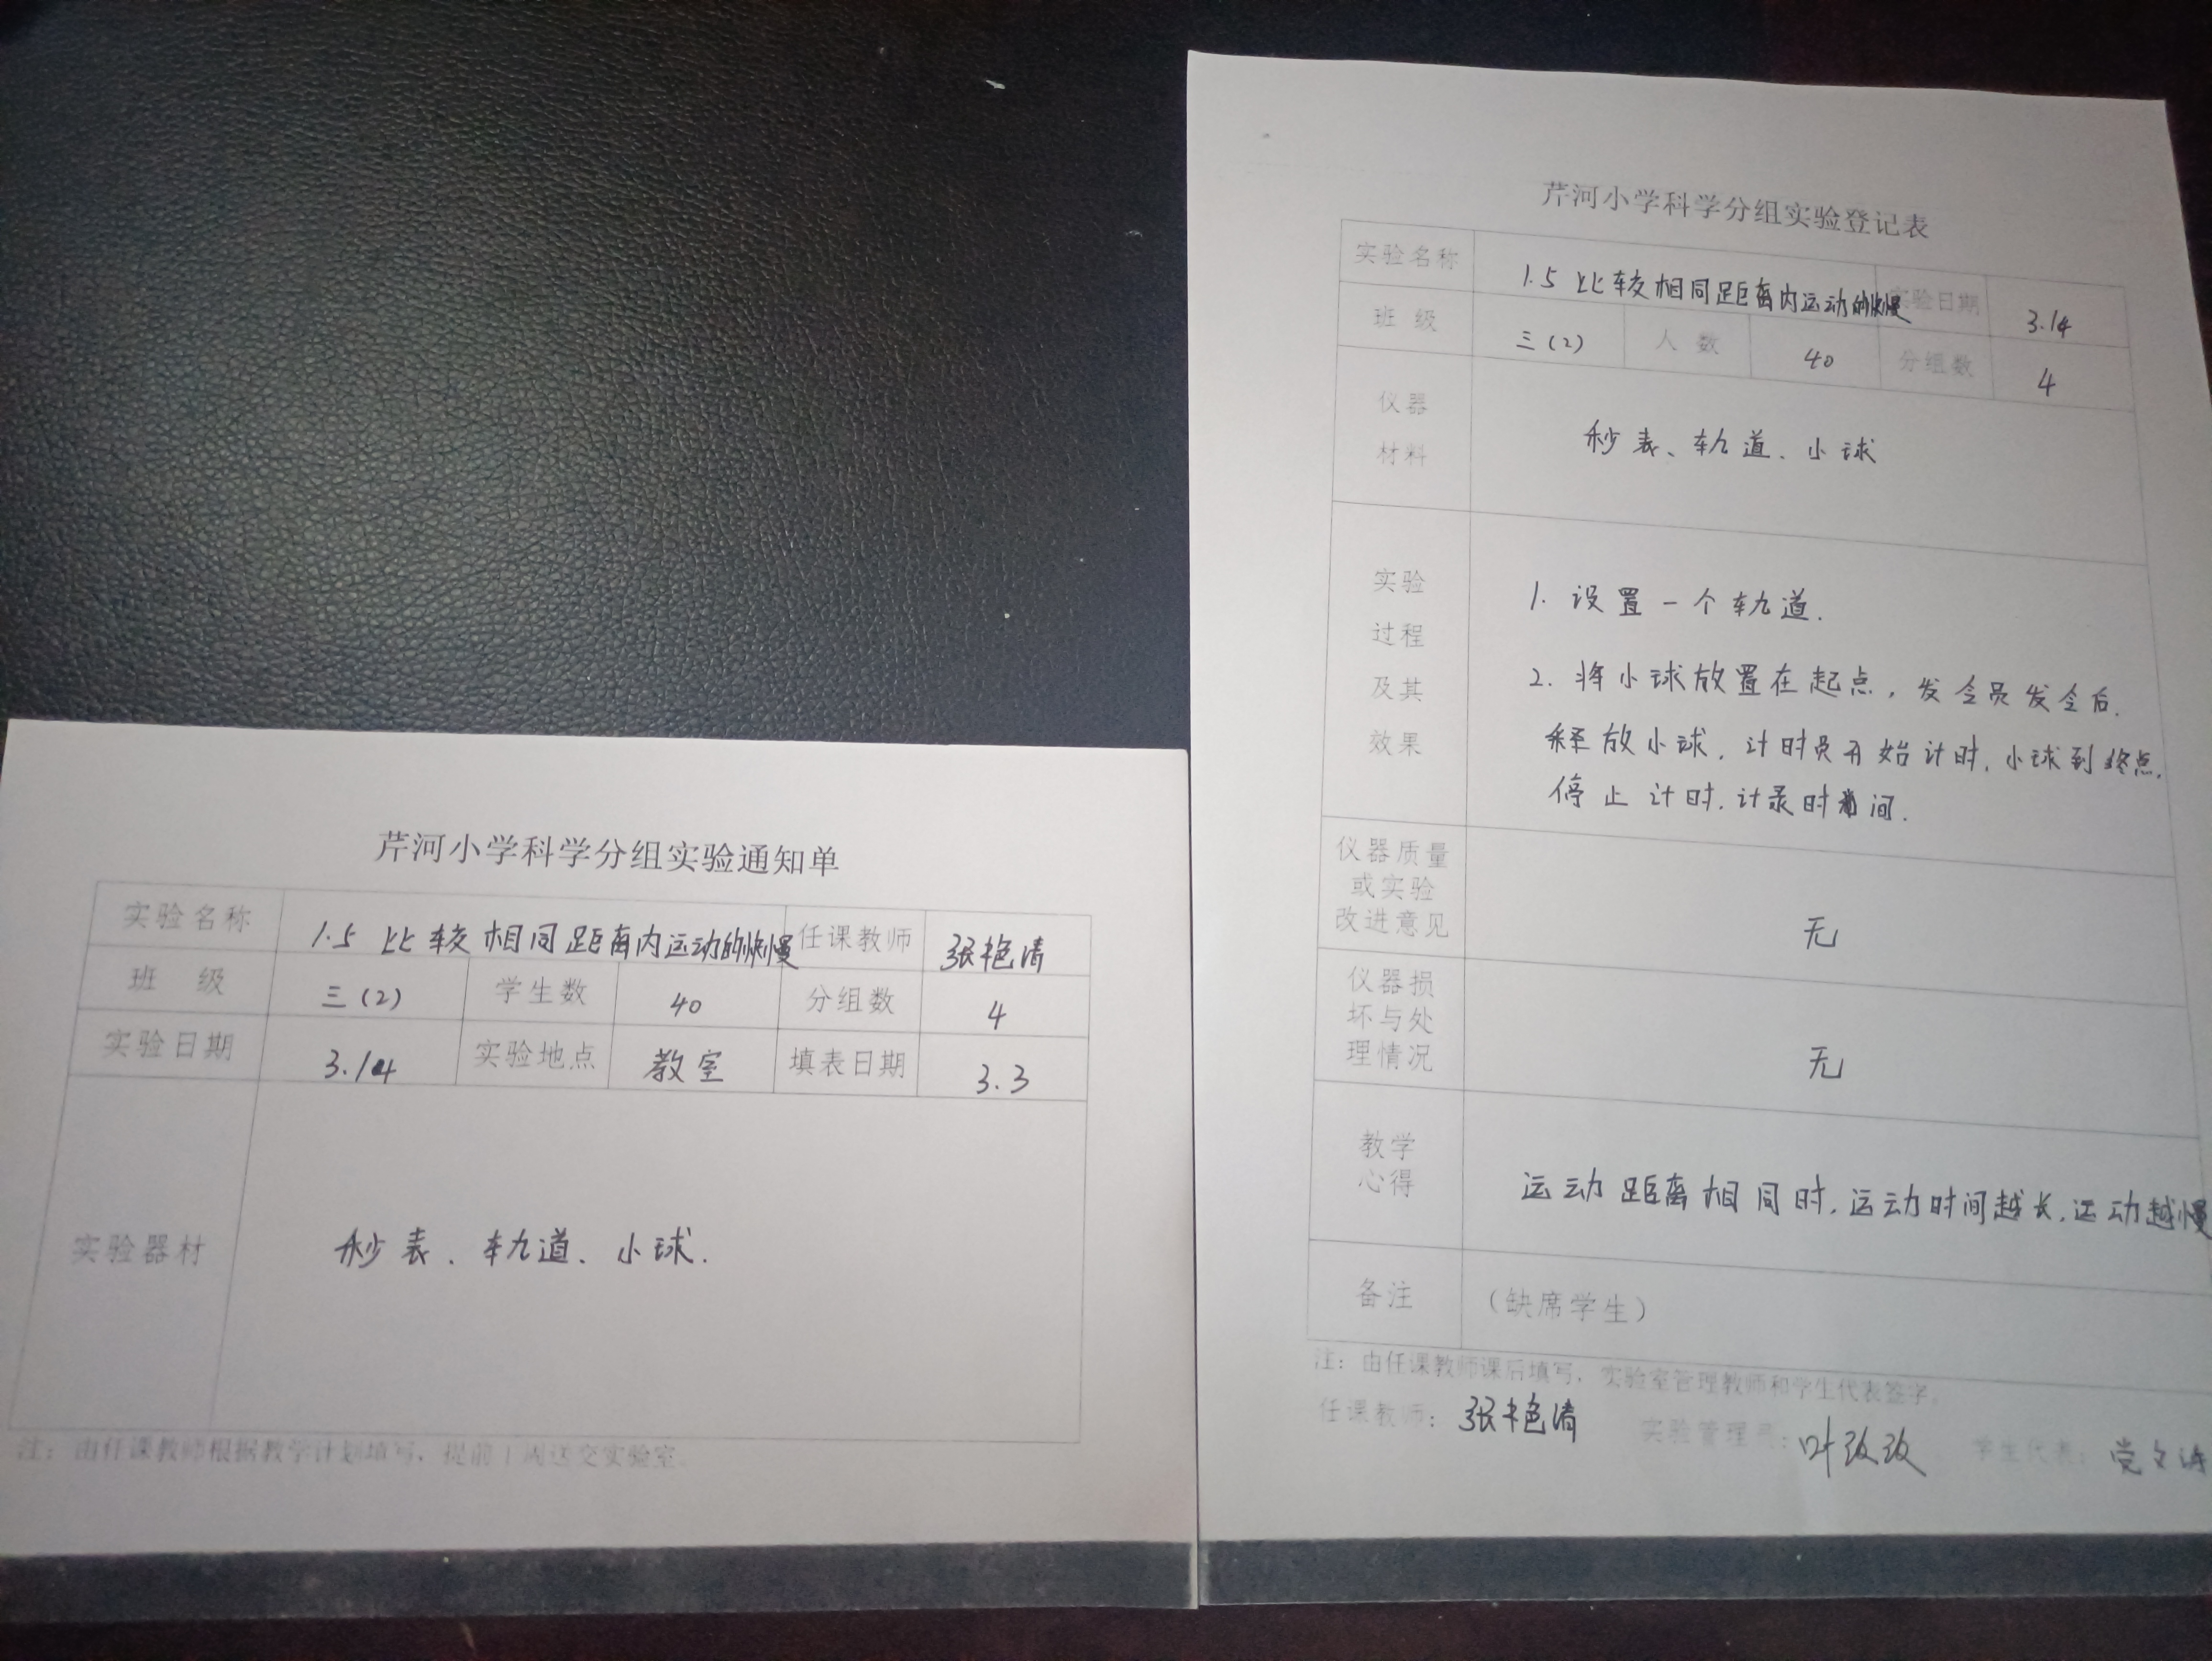 芹河小学科学分组实验通知单
实验名称 1.5 比较相同距离内运动的快慢 任课教师 张艳清
班 级 三(2) 学生数 40 分组数 4
实验日期 3.14 实验地点 教室 填表日期 3.3
实验器材 秒表、轨道、小球.
注：由任课教师根据教学计划填写，提前1周送交实验室。
芹河小学科学分组实验登记表
实验名称 1.5 比较相同距离内运动的快慢 实验日期 3.14
班 级 三(2) 人 数 40 分组数 4
仪器
材料
秒表、轨道、小球
实验
过程
及其
效果
1. 设置一个轨道.
2. 将小球放置在起点，发令员发令后.
释放小球，计时员开始计时，小球到终点.
停止计时，计录时间.
仪器质量
或实验
改进意见
无
仪器损
坏与处
理情况
无
教学
心得
运动距离相同时，运动时间越长，运动越慢
备注 （缺席学生）
注：由任课教师课后填写，实验室管理教师和学生代表签字。
任课教师：张艳清 实验管理员：叶改改 学生代表：党文